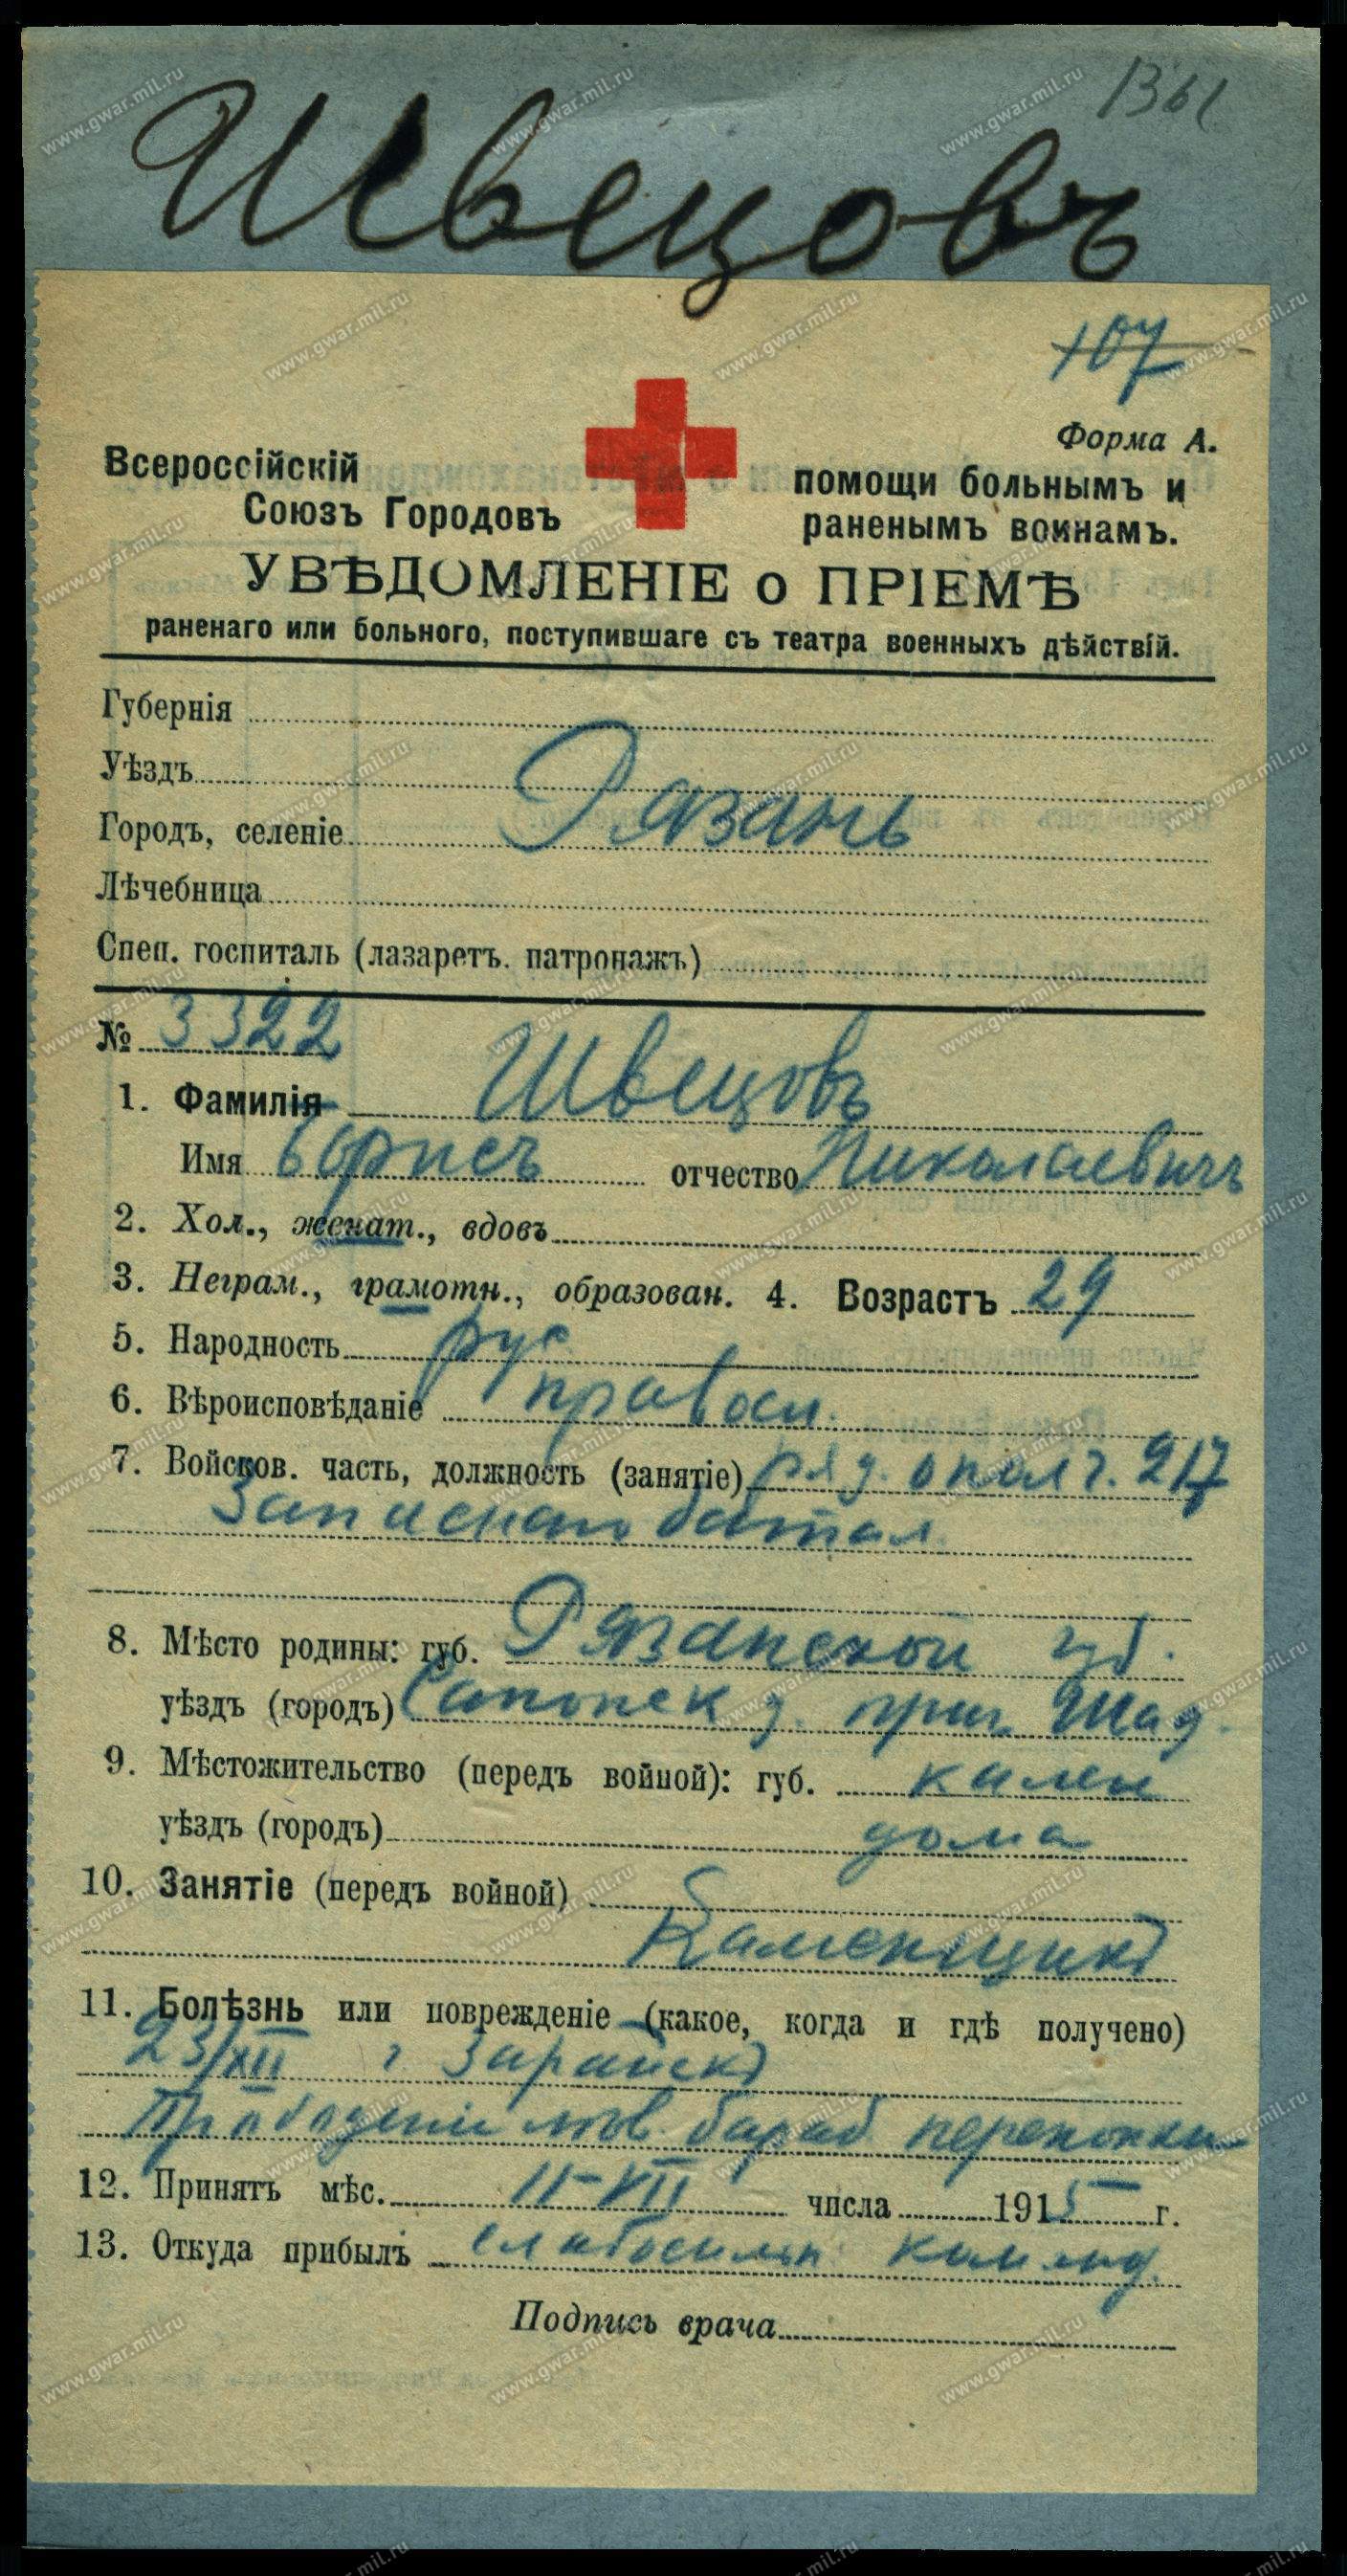 1361
Швецовъ
107
Форма А.
Всероссійскій
Союзъ Городовъ
помощи больнымъ и
раненымъ воинамъ.
УВѢДОМЛЕНІЕ о ПРІЕМѢ
раненаго или больного, поступившаге съ театра военныхъ дѣйствій.
Губернія
Уѣздъ
Городъ, селеніе Рязань
Лѣчебница
Спец. госпиталь (лазаретъ. патронажъ)
№ 3322
1. Фамилія Швецовъ
Имя Борисъ отчество Николаевичъ
2. Хол., женат., вдовъ
3. Неграм., грамотн., образован. 4. Возрастъ 29
5. Народность рус
6. Вѣроисповѣданіе правосл.
7. Войсков. часть, должность (занятіе) ряд. ополч. 217
Запасной батал.
8. Мѣсто родины: губ. Рязанской губ.
уѣздъ (городъ)
9. Мѣстожительство (передъ войной): губ.
уѣздъ (городъ) дома
10. Занятіе (передъ войной)
Каменщикъ
11. Болѣзнь или поврежденіе (какое, когда и гдѣ получено)
23/XII г Зарайскъ
Прободеніе лѣв. бараб. перепонки
12. Принятъ мѣс. 11-VII числа 1915 г.
13. Откуда прибылъ слабосильн. команд.
Подпись врача
www.gwar.mil.ru